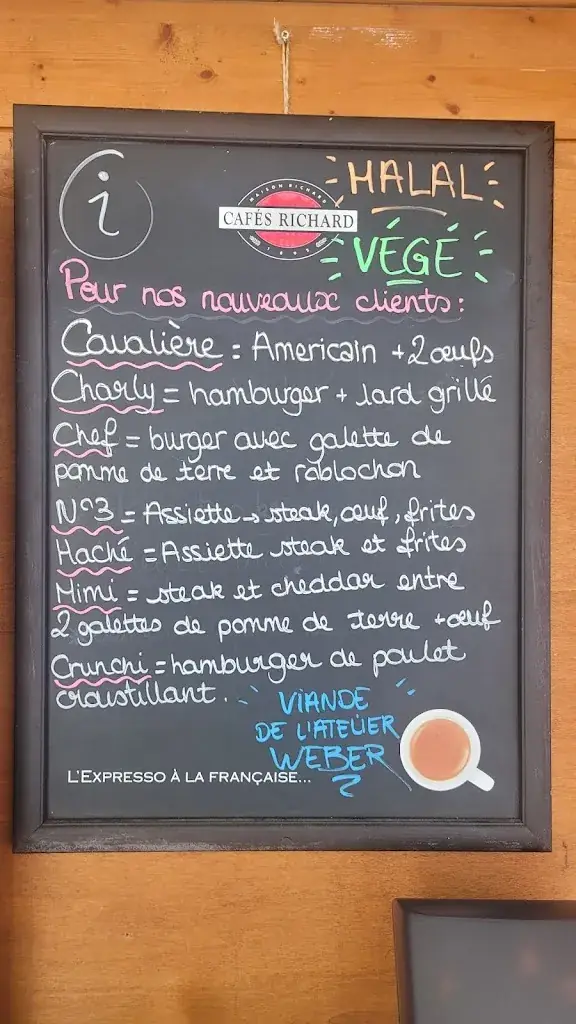 i
MAISON RICHARD
CAFÉS RICHARD
HALAL
VÉGÉ
Pour nos nouveaux clients :
Cavalière = Americain + 2 œufs
Charly = hamburger + lard grillé
Chef = burger avec galette de
pomme de terre et rablochon
N°3 = Assiette → steak, œuf, frites
Haché = Assiette steak et frites
Mimi = steak et cheddar entre
2 galettes de pomme de terre + œuf
Crunchi = hamburger de poulet
croustillant.
VIANDE
DE L'ATELIER
WEBER
L'EXPRESSO À LA FRANÇAISE...